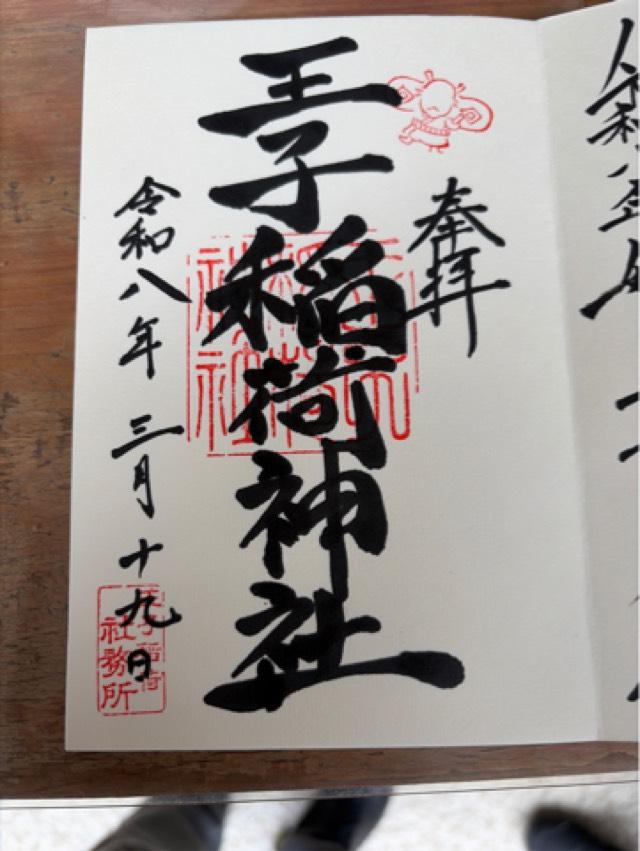 奉拝
王子稲荷神社
令和八年 三月十九日
王子稲荷
社務所